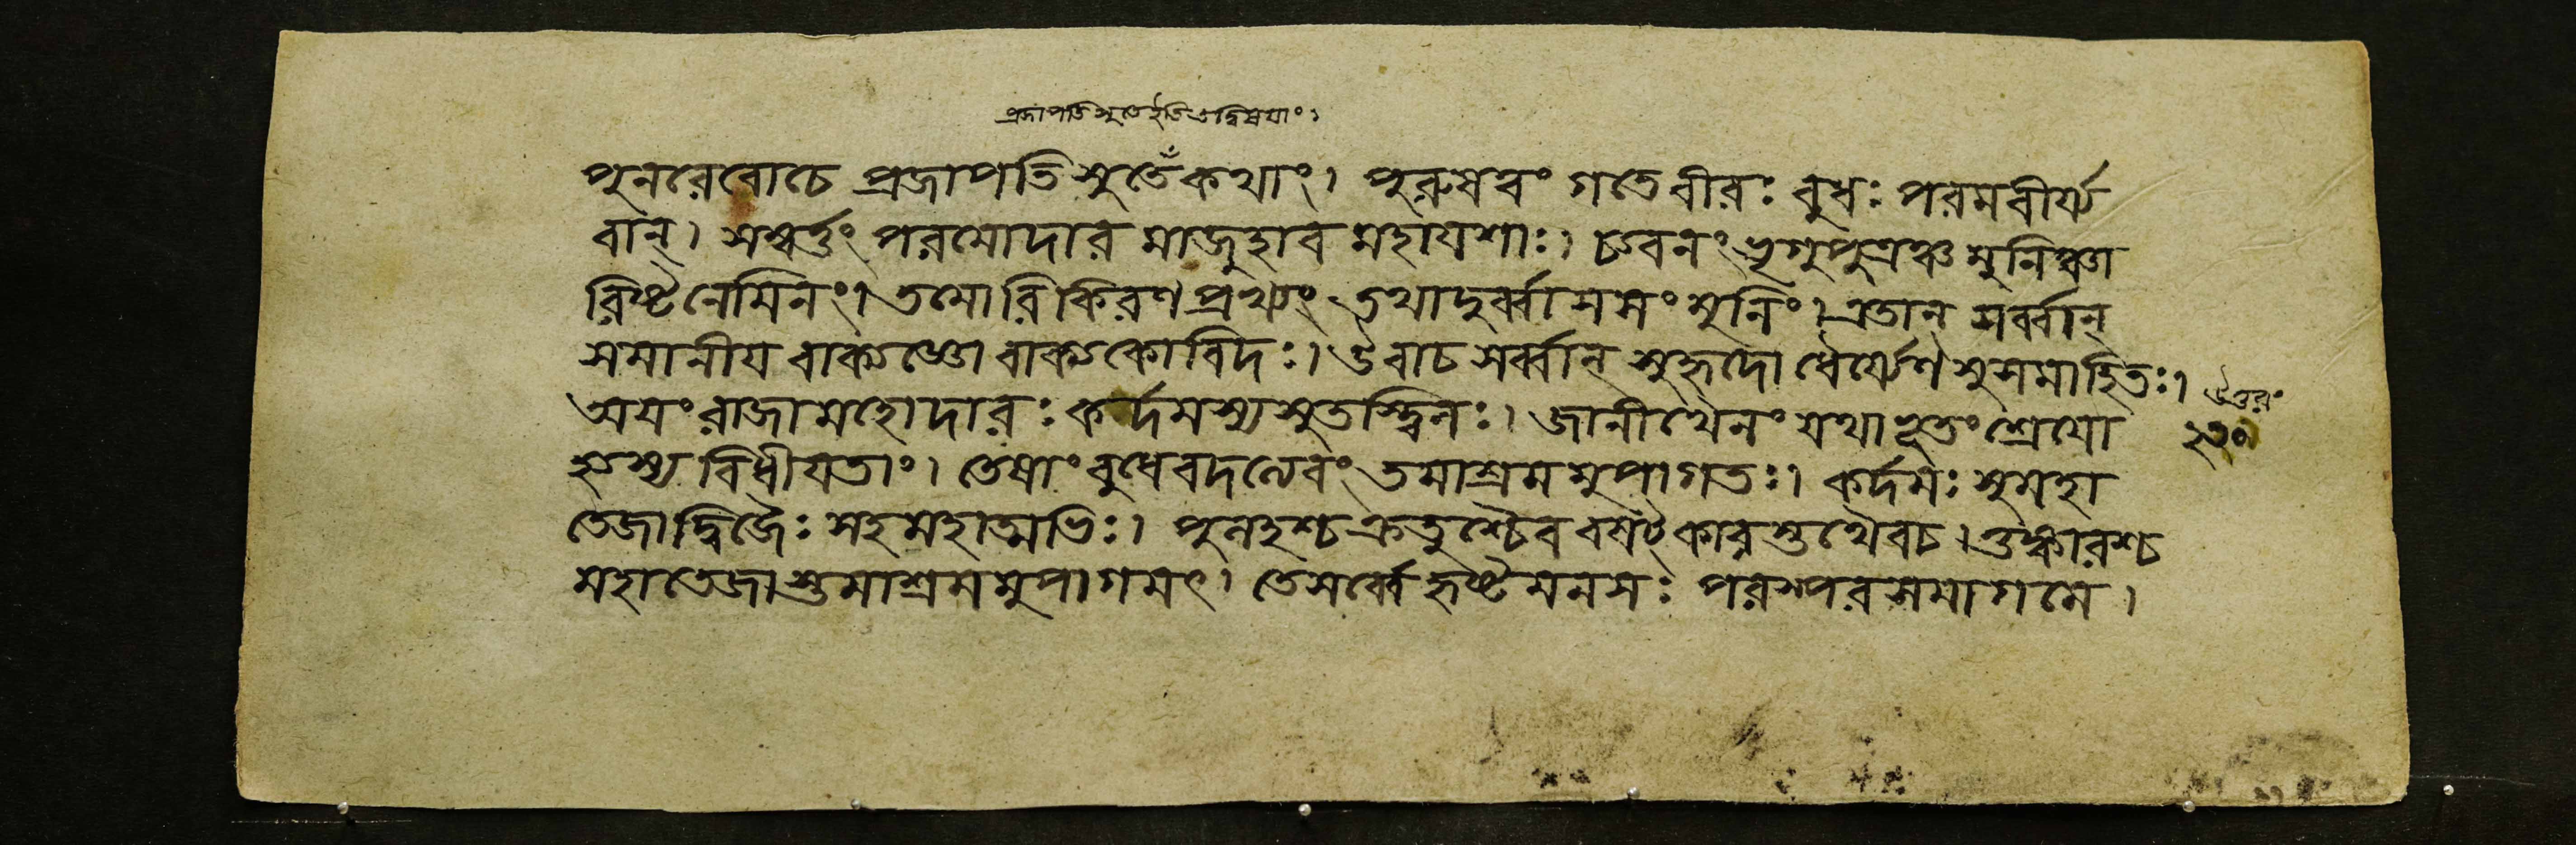 প্রজাপতিসুতেইতিতদ্বিষয়াং।
পুনরেবোচে প্রজাপতিসুতেঁকথাং। পুরুষত্বং গতেবীরঃ বুধঃ পরমবীর্য্য
বান্। সম্বর্ত্তং পরমোদার মাজুহাব মহাযশাঃ। চ্যবনং ভৃগুপুত্রঞ্চ মুনিঞ্চা
রিষ্টনেমিনং। তমোরিকিরণপ্রখ্যং তথাদুর্ব্বাসসং মুনিং। এতান্ সর্ব্বান্
সমানীয বাক্যজ্ঞো বাক্যকোবিদঃ। উবাচ সর্ব্বান্ সুহৃদো ধৈর্য্যেণ সুসমাহিতঃ।
অযং রাজামহোদারঃ কর্দমস্যসুতস্ত্বিনঃ। জানীথৈনং যথাভূতং শ্রেযো
হ্যস্য বিধীযতাং। তেষাং বুধেবদত্যেবং তমাশ্রমমুপাগতঃ। কর্দমঃ সুমহা
তেজাদ্বিজৈঃ সহমহাত্মভিঃ। পুলহশ্চ ক্রতুশ্চৈব বষট্কারস্তথৈবচ। ওঙ্কারশ্চ
মহাতেজাস্তমাশ্রমমুপাগমৎ। তেসর্ব্বে হৃষ্টমনসঃ পরস্পরসমাগমে।
উত্তরং
২৩০